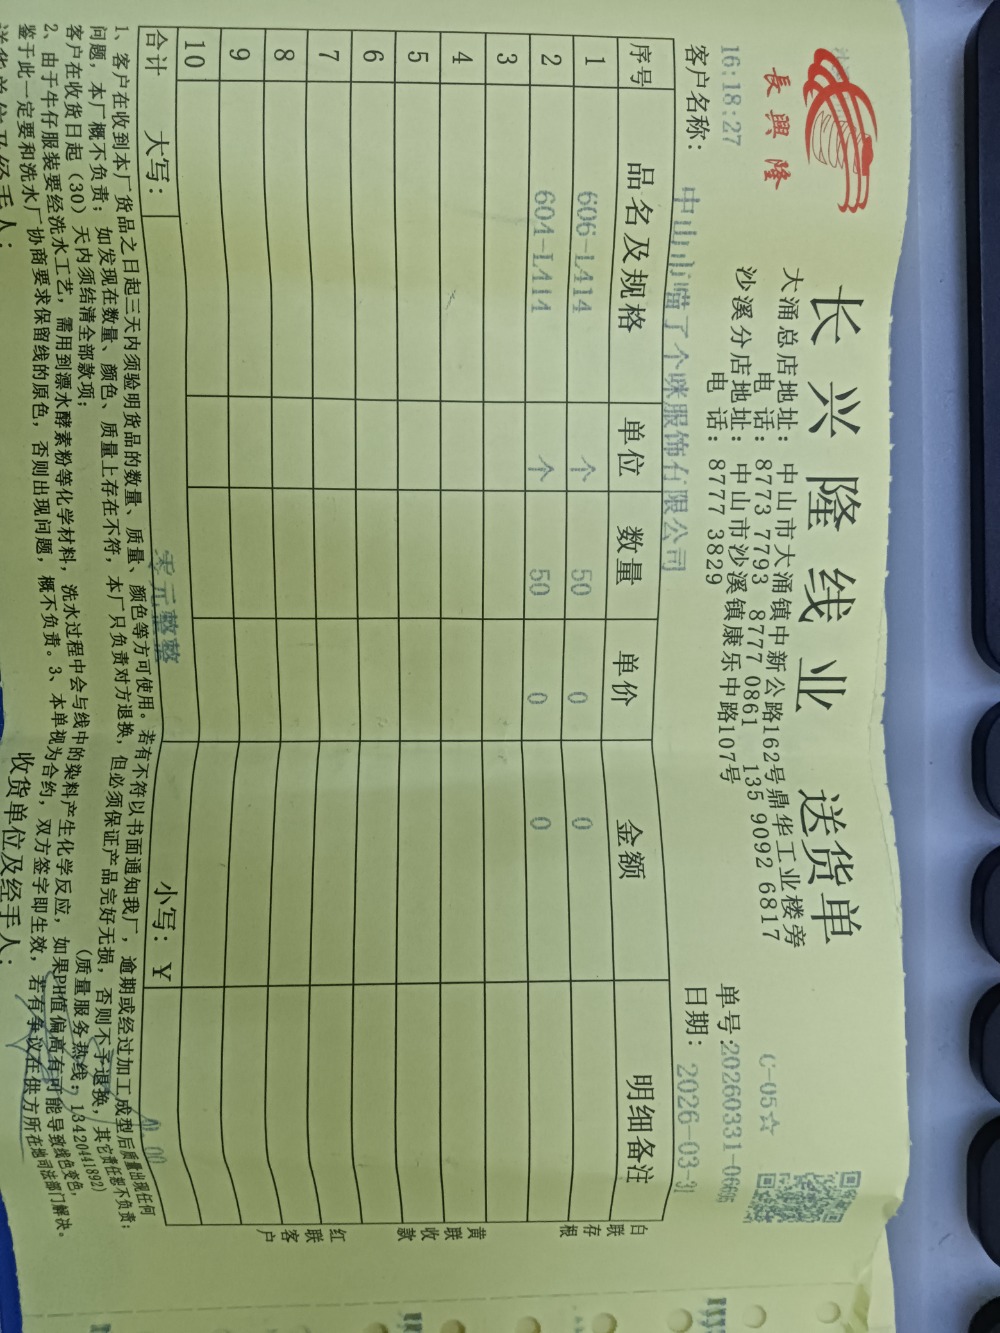 長興隆
长兴隆线业 送货单
C-05☆
大涌总店地址: 中山市大涌镇中新公路162号鼎华工业楼旁
电 话: 8773 7793 8777 0861 135 9092 6817
沙溪分店地址: 中山市沙溪镇康乐中路107号
电 话: 8777 3829
16:18:27
单号:20260331-06606
客户名称: 中山市喵了个咪服饰有限公司
日期: 2026-03-31
序号 品名及规格 单位 数量 单价 金额 明细备注
1 606-L414 个 50 0 0
2 604-L414 个 50 0 0
3
4
5
6
7
8
9
10
合计 大写: 零元整整 小写: ¥ 0.00
白联存根
黄联收款
红联客户
1、客户在收到本厂货品之日起三天内须验明货品的数量、质量、颜色等方可使用。若有不符以书面通知我厂，逾期或经过加工成型后质量出现任何
问题，本厂概不负责；如发现在数量、颜色、质量上存在不符，本厂只负责对方退换，但必须保证产品完好无损，否则不予退换，其它责任恕不负责；
客户在收货日起（30）天内须结清全部款项； (质量服务热线: 13420441892)
2、由于牛仔服装要经洗水工艺，需用到漂水酵素粉等化学材料，洗水过程中会与线中的染料产生化学反应，如果PH值偏高有可能导致线色变色，
鉴于此一定要和洗水厂协商要求保留线的原色，否则出现问题，概不负责。3、本单视为合约，双方签字即生效，若有争议在供方所在地司法部门解决。
送货单位及经手人: 收货单位及经手人: